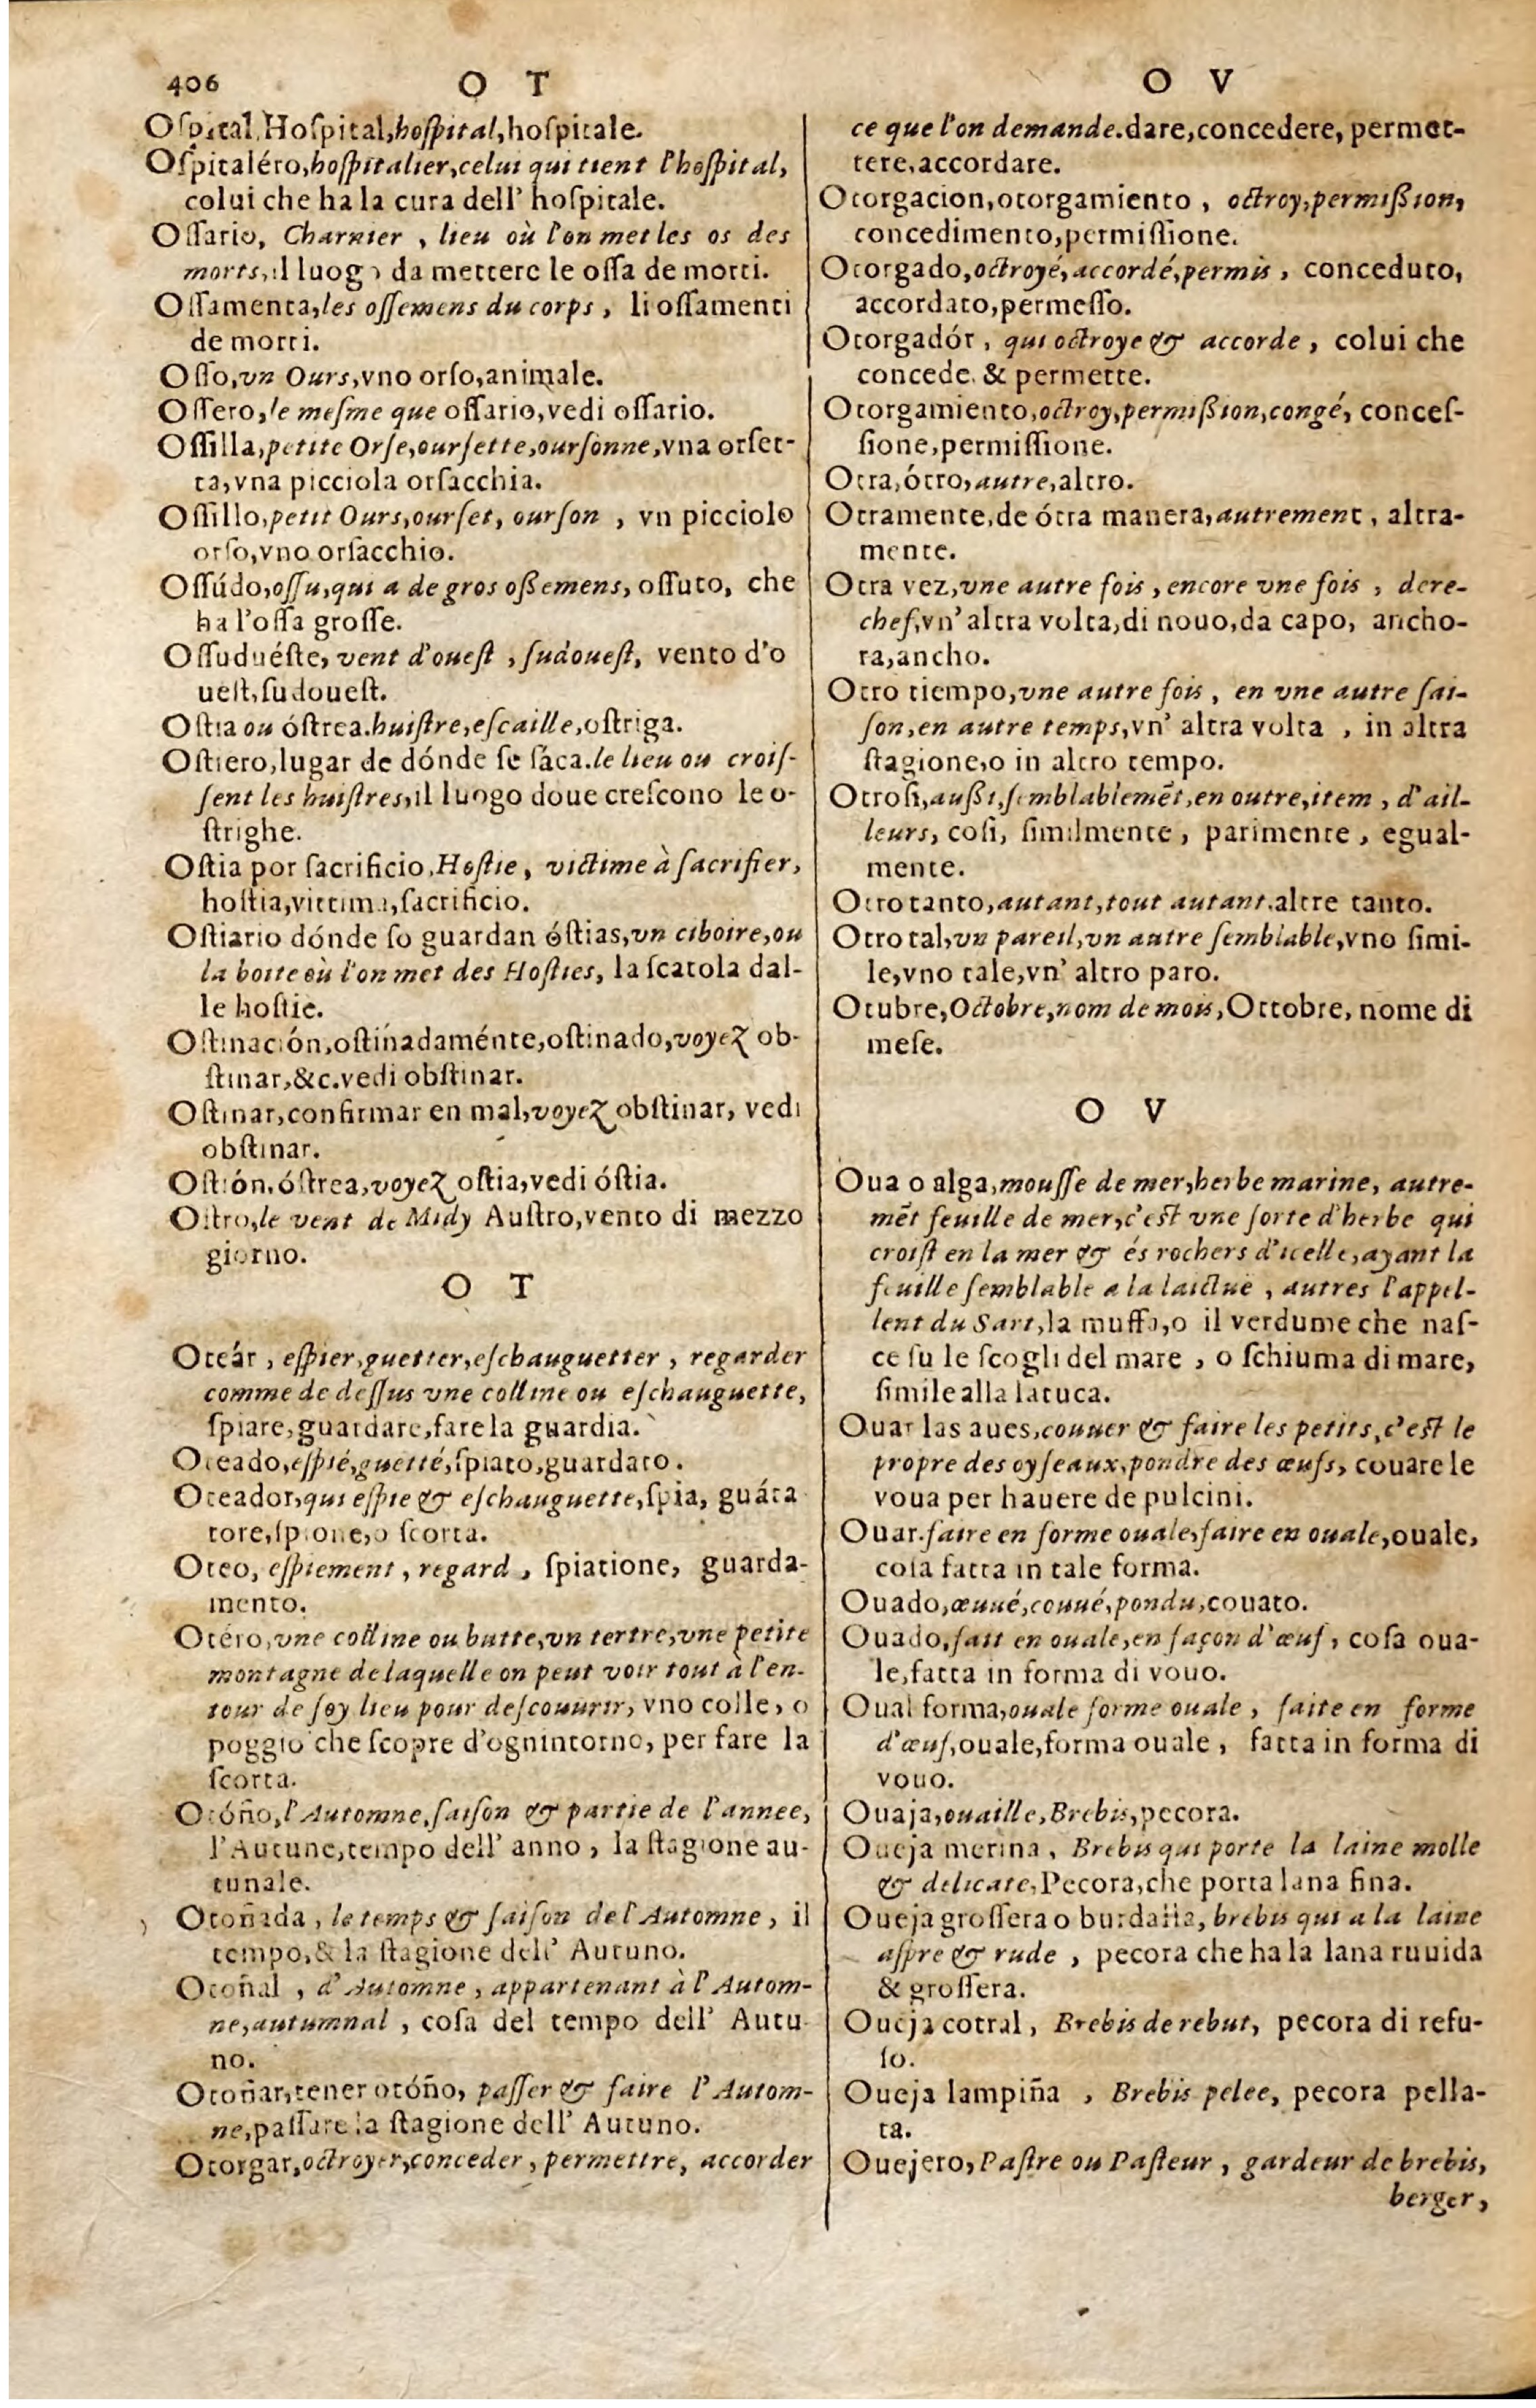 406
O T
Oſpital, Hoſpital, hoſpital, hoſpitale.
Oſpitaléro, hoſpitalier, celui qui tient l'hoſpital,
colui che ha la cura dell' hoſpitale.
Oſſario, Charnier, lieu où l'on met les os des
morts, il luogo da mettere le oſſa de morti.
Oſſamenta, les oſſemens du corps, li oſſamenti
de morti.
Oſſo, vn Ours, vno orſo, animale.
Oſſero, le meſme que oſſario, vedi oſſario.
Oſſilla, petite Orſe, ourſette, ourſonne, vna orſet-
ta, vna picciola orſacchia.
Oſſillo, petit Ours, ourſet, ourſon, vn picciolo
orſo, vno orſacchio.
Oſſúdo, oſſu, qui a de gros oßemens, oſſuto, che
ha l'oſſa groſſe.
Oſſuduéſte, vent d'oueſt, ſudoueſt, vento d'o
ueſt, ſudoueſt.
Oſtia ou óſtrea. huiſtre, eſcaille, oſtriga.
Oſtiero, lugar de dónde ſe ſáca. le lieu ou croiſ-
ſent les huiſtres, il luogo doue creſcono le o-
ſtrighe.
Oſtia por ſacrificio, Hoſtie, victime à ſacrifier,
hoſtia, vittima, ſacrificio.
Oſtiario dónde ſo guardan óſtias, vn ciboire, ou
la boite où l'on met des Hoſties, la ſcatola dal-
le hoſtie.
Oſtinación, oſtinadaménte, oſtinado, voyez ob-
ſtinar, &c. vedi obſtinar.
Oſtinar, confirmar en mal, voyez obſtinar, vedi
obſtinar.
Oſtión, óſtrea, voyez oſtia, vedi óſtia.
Oſtro, le vent de Midy Auſtro, vento di mezzo
giorno.
O T
Oteár, eſpier, guetter, eſchauguetter, regarder
comme de deſſus vne colline ou eſchauguette,
ſpiare, guardare, fare la guardia.
Oteado, eſpié, guetté, ſpiato, guardato.
Oteador, qui eſpie & eſchauguette, ſpia, guáta
tore, ſpione, o ſcorta.
Oteo, eſpiement, regard, ſpiatione, guarda-
mento.
Otéro, vne colline ou butte, vn tertre, vne petite
montagne de laquelle on peut voir tout à l'en-
tour de ſoy lieu pour deſcouurir, vno colle, o
poggio che ſcopre d'ognintorno, per fare la
ſcorta.
Otóño, l'Automne, ſaiſon & partie de l'annee,
l'Autune, tempo dell' anno, la ſtagione au-
tunale.
Otoñada, le temps & ſaiſon de l'Automne, il
tempo, & la ſtagione dell' Autuno.
Otoñal, d'Automne, appartenant à l'Autom-
ne, autumnal, coſa del tempo dell' Autu
no.
Otoñar, tener otóño, paſſer & faire l'Autom-
ne, paſſare la ſtagione dell' Autuno.
Otorgar, octroyer, conceder, permettre, accorder
O V
ce que l'on demande. dare, concedere, permet-
tere, accordare.
Otorgacion, otorgamiento, octroy, permißion,
concedimento, permiſſione.
Otorgado, octroyé, accordé, permis, conceduto,
accordato, permeſſo.
Otorgadór, qui octroye & accorde, colui che
concede. & permette.
Otorgamiento, octroy, permißion, congé, conceſ-
ſione, permiſſione.
Otra, ótro, autre, altro.
Otramente, de ótra manera, autrement, altra-
mente.
Otra vez, vne autre fois, encore vne fois, dere-
chef, vn' altra volta, di nouo, da capo, ancho-
ra, ancho.
Otro tiempo, vne autre fois, en vne autre ſai-
ſon, en autre temps, vn' altra volta, in altra
ſtagione, o in altro tempo.
Otroſi, außi, ſemblablemẽt, en outre, item, d'ail-
leurs, coſi, ſimilmente, parimente, egual-
mente.
Otro tanto, autant, tout autant. altre tanto.
Otro tal, vn pareil, vn autre ſemblable, vno ſimi-
le, vno tale, vn' altro paro.
Otubre, Octobre, nom de mois, Ottobre, nome di
meſe.
O V
Oua o alga, mouſſe de mer, herbe marine, autre-
mẽt feuille de mer, c'eſt vne ſorte d'herbe qui
croiſt en la mer & és rochers d'icelle, ayant la
feuille ſemblable a la laictue, autres l'appel-
lent du Sart, la muffa, o il verdume che naſ-
ce ſu le ſcogli del mare, o ſchiuma di mare,
ſimile alla latuca.
Ouar las aues, couuer & faire les petits, c'eſt le
propre des oyſeaux, pondre des œufs, couare le
voua per hauere de pulcini.
Ouar. faire en forme ouale, faire en ouale, ouale,
coſa fatta in tale forma.
Ouado, œuué, couué, pondu, couato.
Ouado, fait en ouale, en façon d'œuf, coſa oua-
le, fatta in forma di vouo.
Oual forma, ouale forme ouale, faite en forme
d'œuf, ouale, forma ouale, fatta in forma di
vouo.
Ouaja, ouaille, Brebis, pecora.
Oueja merina, Brebis qui porte la laine molle
& delicate, Pecora, che porta lana fina.
Oueja groſſera o burdalla, brebis qui a la laine
aſpre & rude, pecora che ha la lana ruuida
& groſſera.
Oueja cotral, Brebis de rebut, pecora di refu-
ſo.
Oueja lampiña, Brebis pelee, pecora pella-
ta.
Ouejero, Paſtre ou Paſteur, gardeur de brebis,
berger,